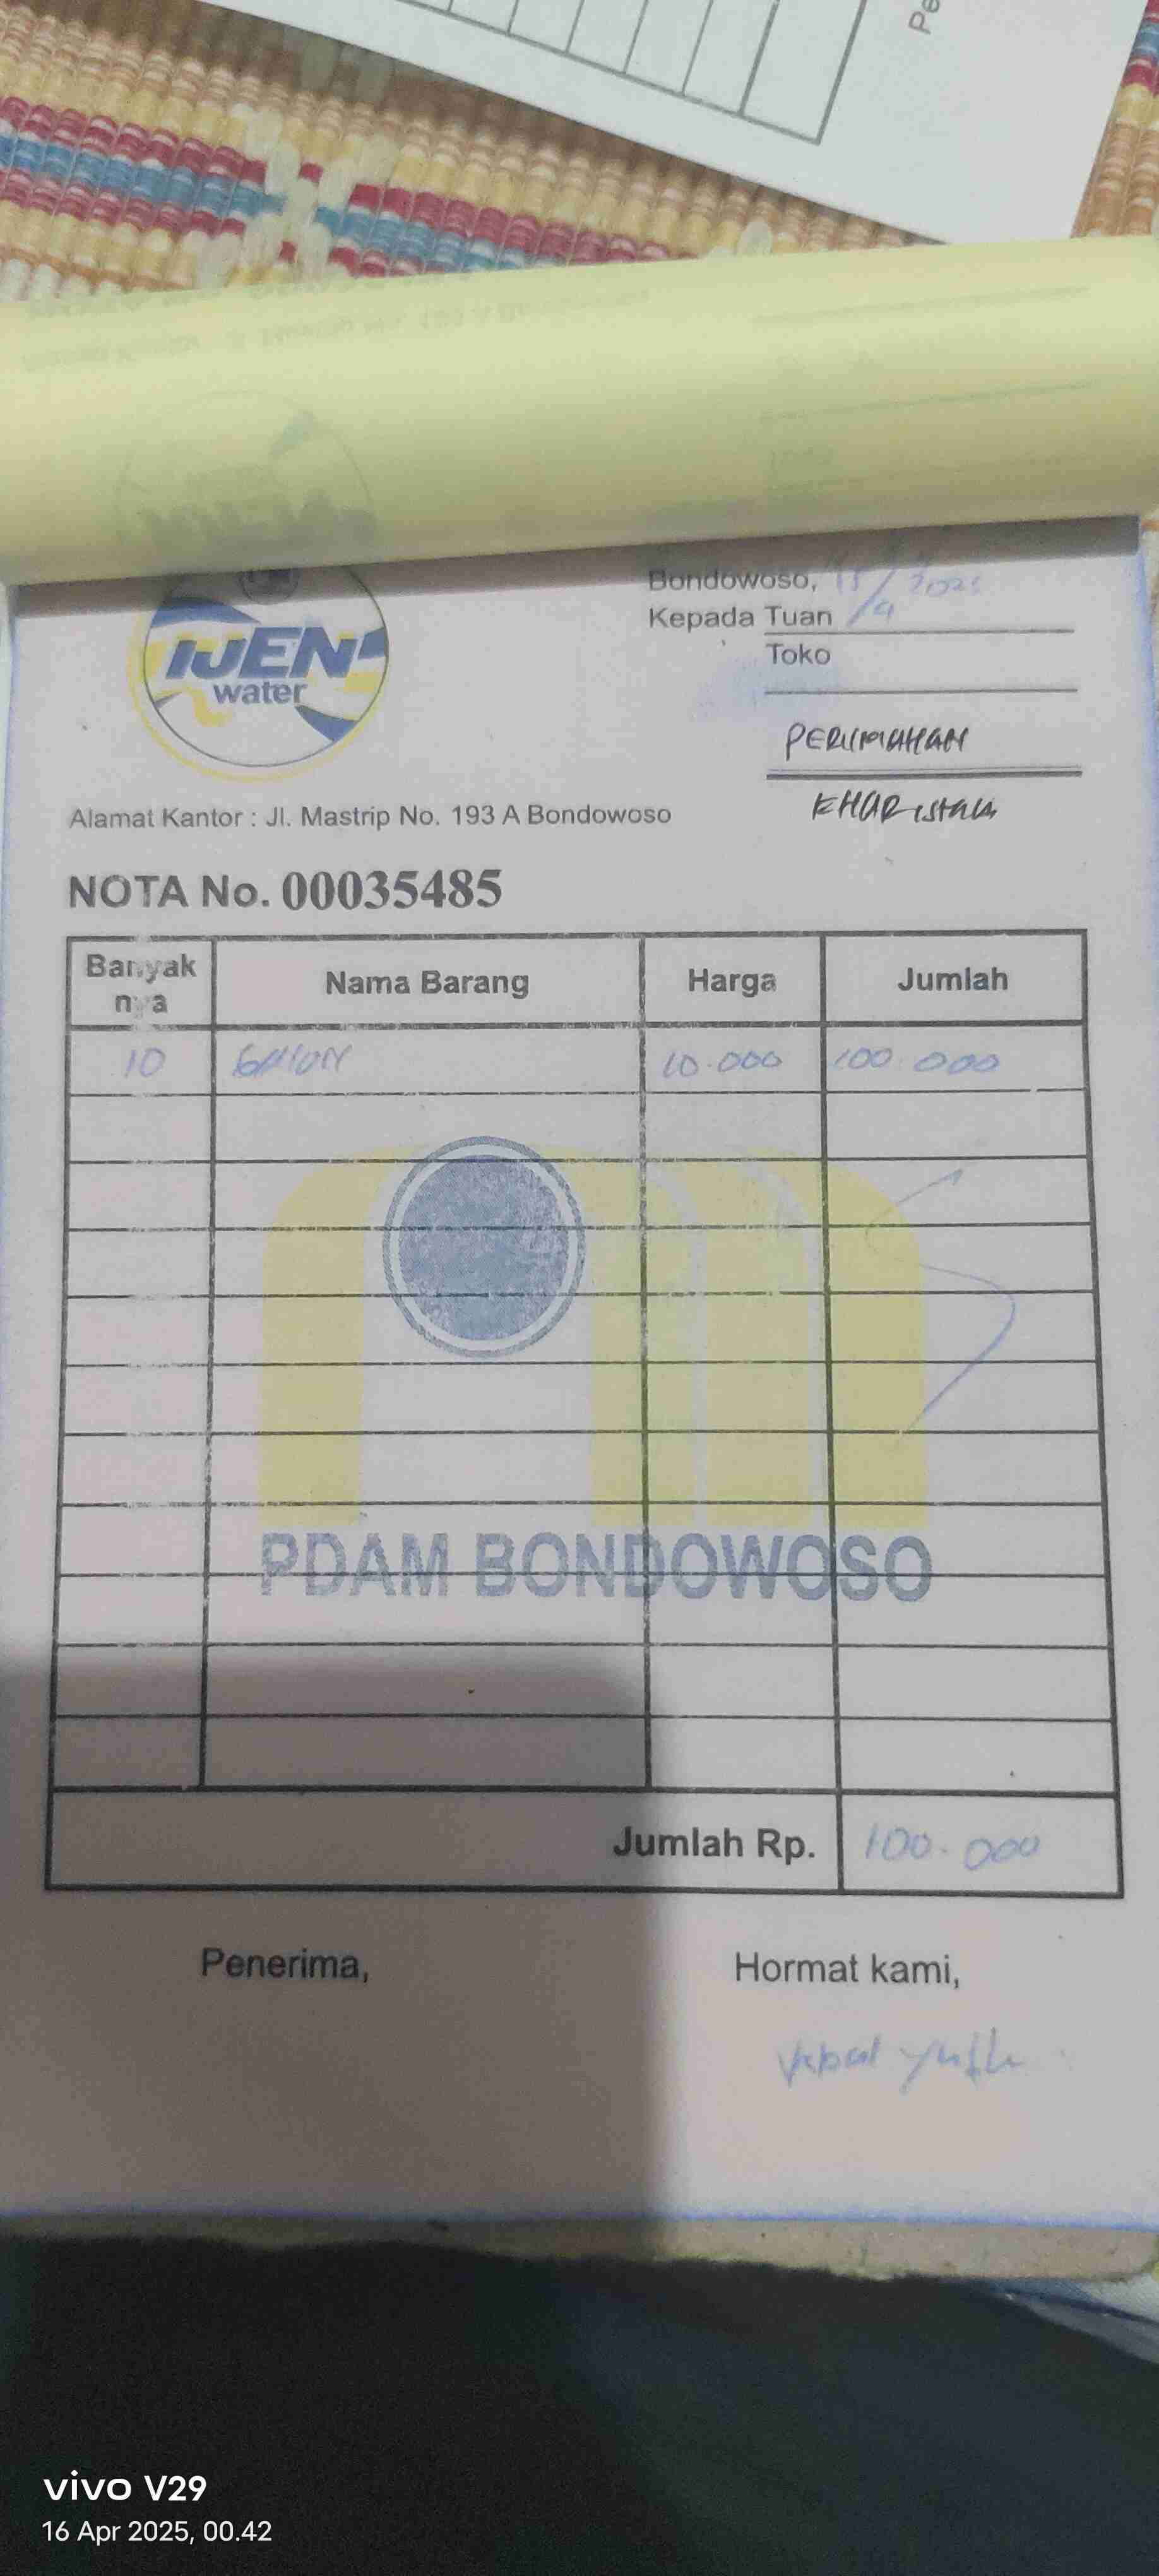 Pe
IJEN
water
Bondowoso, 15/4 2025
Kepada Tuan
Toko
PERUMAHAN
Alamat Kantor : Jl. Mastrip No. 193 A Bondowoso
NOTA No. 00035485
Banyak nya Nama Barang Harga Jumlah
10 GALON 10.000 100.000
PDAM BONDOWOSO
Jumlah Rp. 100.000
Penerima, Hormat kami,
vivo V29
16 Apr 2025, 00.42